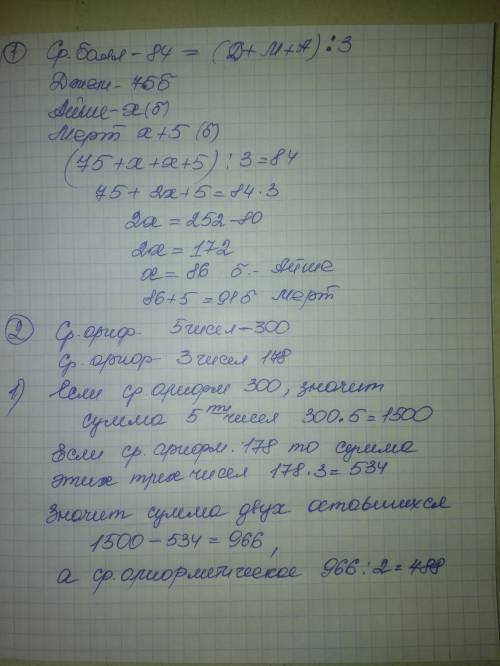 1 Ср. балл – 84 = (Д+М+А) : 3
Джем – 75б
Айше – x (б)
Мерт x+5 (б)
(75+x+x+5) : 3 = 84
75 + 2x+5 = 84·3
2x = 252–80
2x = 172
x = 86 б. – Айше
86+5 = 91б Мерт
2 Ср. ариф. 5 чисел – 300
Ср. ариф 3 чисел 178
1) Если ср. арифм 300, значит
сумма 5 ти чисел 300·5 = 1500
Если ср. арифм. 178 то сумма
этих трех чисел 178·3 = 534
Значит сумма двух оставшихся
1500 – 534 = 966,
а ср. арифметическое 966 : 2 =